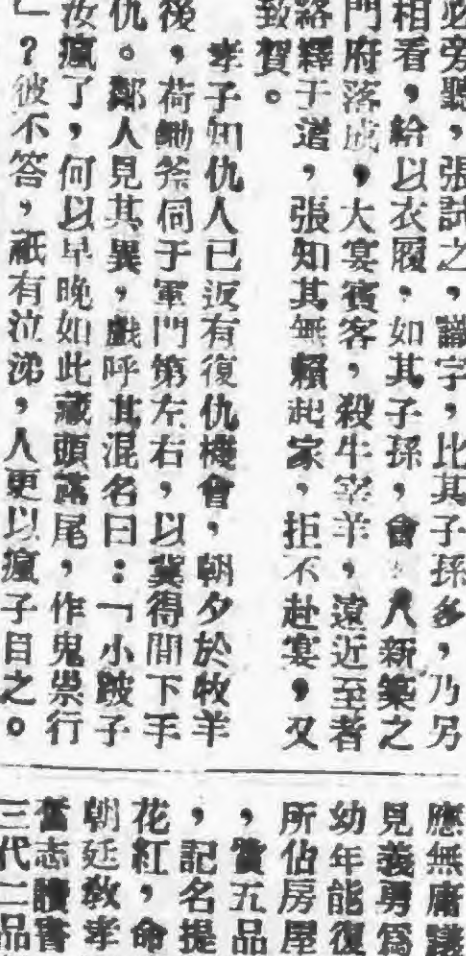 必旁聽，張試之，識字，比其子孫多，乃另
相看，給以衣履，如其子孫，會 人新築之
門府落成，大宴賓客，殺牛宰羊，遠近至者
絡繹于道，張知其無賴起家，拒不赴宴，又
致賀。
孝子知仇人已返有復仇機會，朝夕於牧羊
後，荷鋤斧伺于軍門第左右，以冀得間下手
仇。鄰人見其異，戲呼其混名曰：「小跛子
汝瘋了，何以早晚如此藏頭露尾，作鬼祟行
」？彼不答，祇有泣涕，人更以瘋子目之。
應無庸議
見義勇爲
幼年能復
所佔房屋
，賞五品
，記名提
花紅，命
朝廷敎孝
奮志讀書
三代二品